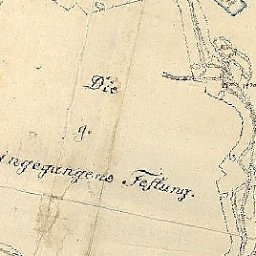 Die
q.
ingegangene Festung.